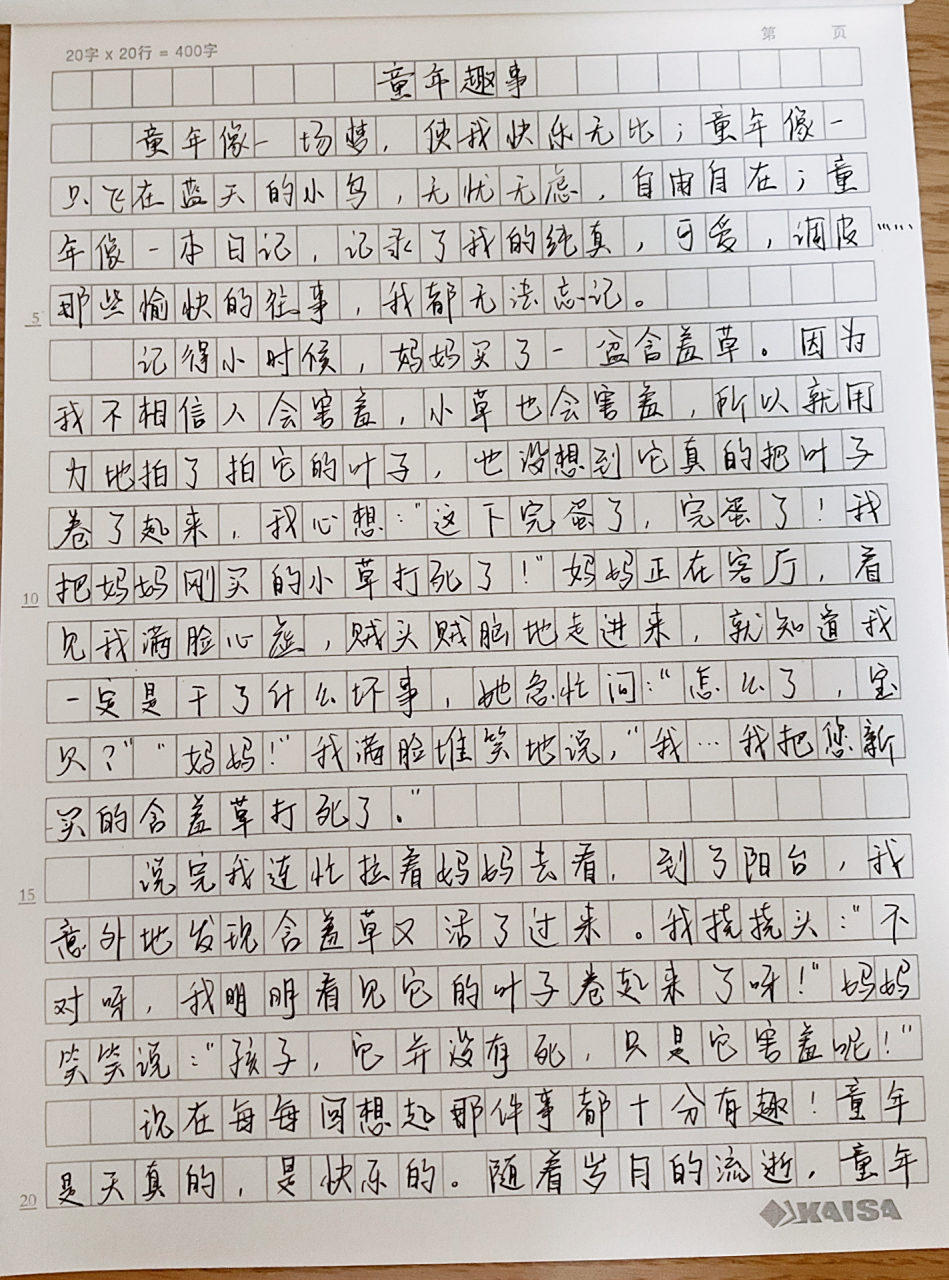 第 页
20字 x 20行 = 400字
童年趣事
童年像一场梦，使我快乐无比；童年像一
只飞在蓝天的小鸟，无忧无虑，自由自在；童
年像一本日记，记录了我的纯真，可爱，调皮……
那些愉快的往事，我都无法忘记。
5
记得小时候，妈妈买了一盆含羞草。因为
我不相信人会害羞，小草也会害羞，所以就用
力地拍了拍它的叶子，也没想到它真的把叶子
卷了起来，我心想：“这下完蛋了，完蛋了！我
把妈妈刚买的小草打死了！”妈妈正在客厅，看
10
见我满脸心虚，贼头贼脑地走进来，就知道我
一定是干了什么坏事，她急忙问：“怎么了，宝
贝？”“妈妈！”我满脸堆笑地说，“我…我把您新
买的含羞草打死了。”
说完我连忙拉着妈妈去看，到了阳台，我
15
意外地发现含羞草又活了过来。我挠挠头：“不
对呀，我明明看见它的叶子卷起来了呀！”妈妈
笑笑说：“孩子，它并没有死，只是它害羞呢！”
现在每每回想起那件事都十分有趣！童年
是天真的，是快乐的。随着岁月的流逝，童年
20
KAISA